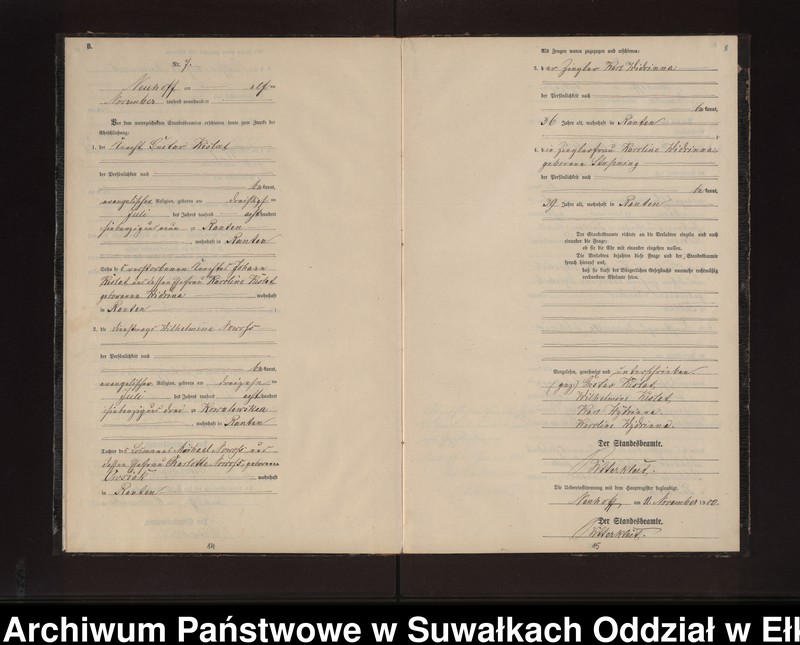 B.
Nr. 7.
Neuhoff am elf ten
November tausend neunhundert
Vor dem unterzeichneten Standesbeamten erschienen heute zum Zwecke der
Eheschließung:
1. der Knecht Gustav Kislat
der Persönlichkeit nach
be kannt,
evangelischer Religion, geboren am dreißigsten
Juli des Jahres tausend acht hundert
siebenzig und neun zu Ranten
, wohnhaft in Ranten
Sohn des verstorbenen Knechtes Johann
Kislat und dessen Ehefrau Karoline Kislat
geborenen Widrinna wohnhaft
in Ranten
2. die Dienstmagd Wilhelmine Nowosz
der Persönlichkeit nach
be kannt,
evangelischer Religion, geboren am dreizehn ten
Juli des Jahres tausend acht hundert
siebenzig und drei zu Kowalewsken
, wohnhaft in Ranten
Tochter des Losmanns Michael Nowosz und
dessen Ehefrau Charlotte Nowosz, geborenen
wohnhaft
in Ranten
14
Als Zeugen waren zugezogen und erschienen:
3. der Ziegler Karl Widrinna
der Persönlichkeit nach
be kannt,
36 Jahre alt, wohnhaft in Ranten
4. die Zieglerfrau Karoline Widrinna
geborene
der Persönlichkeit nach
be kannt,
39 Jahre alt, wohnhaft in Ranten
Der Standesbeamte richtete an die Verlobten einzeln und nach
einander die Frage:
ob sie die Ehe mit einander eingehen wollen.
Die Verlobten bejahten diese Frage und der Standesbeamte
sprach hierauf aus,
daß sie kraft des Bürgerlichen Gesetzbuchs nunmehr rechtmäßig
verbundene Eheleute seien.
Vorgelesen, genehmigt und unterschrieben
(gez) Gustav Kislat.
Wilhelmine Kislat.
Karl Wydrinna.
Karoline Wydrinna.
Der Standesbeamte.
Die Uebereinstimmung mit dem Hauptregister beglaubigt.
Neuhoff, am 11. November 1900.
Der Standesbeamte.
15
Archiwum Państwowe w Suwałkach Oddział w Ełk